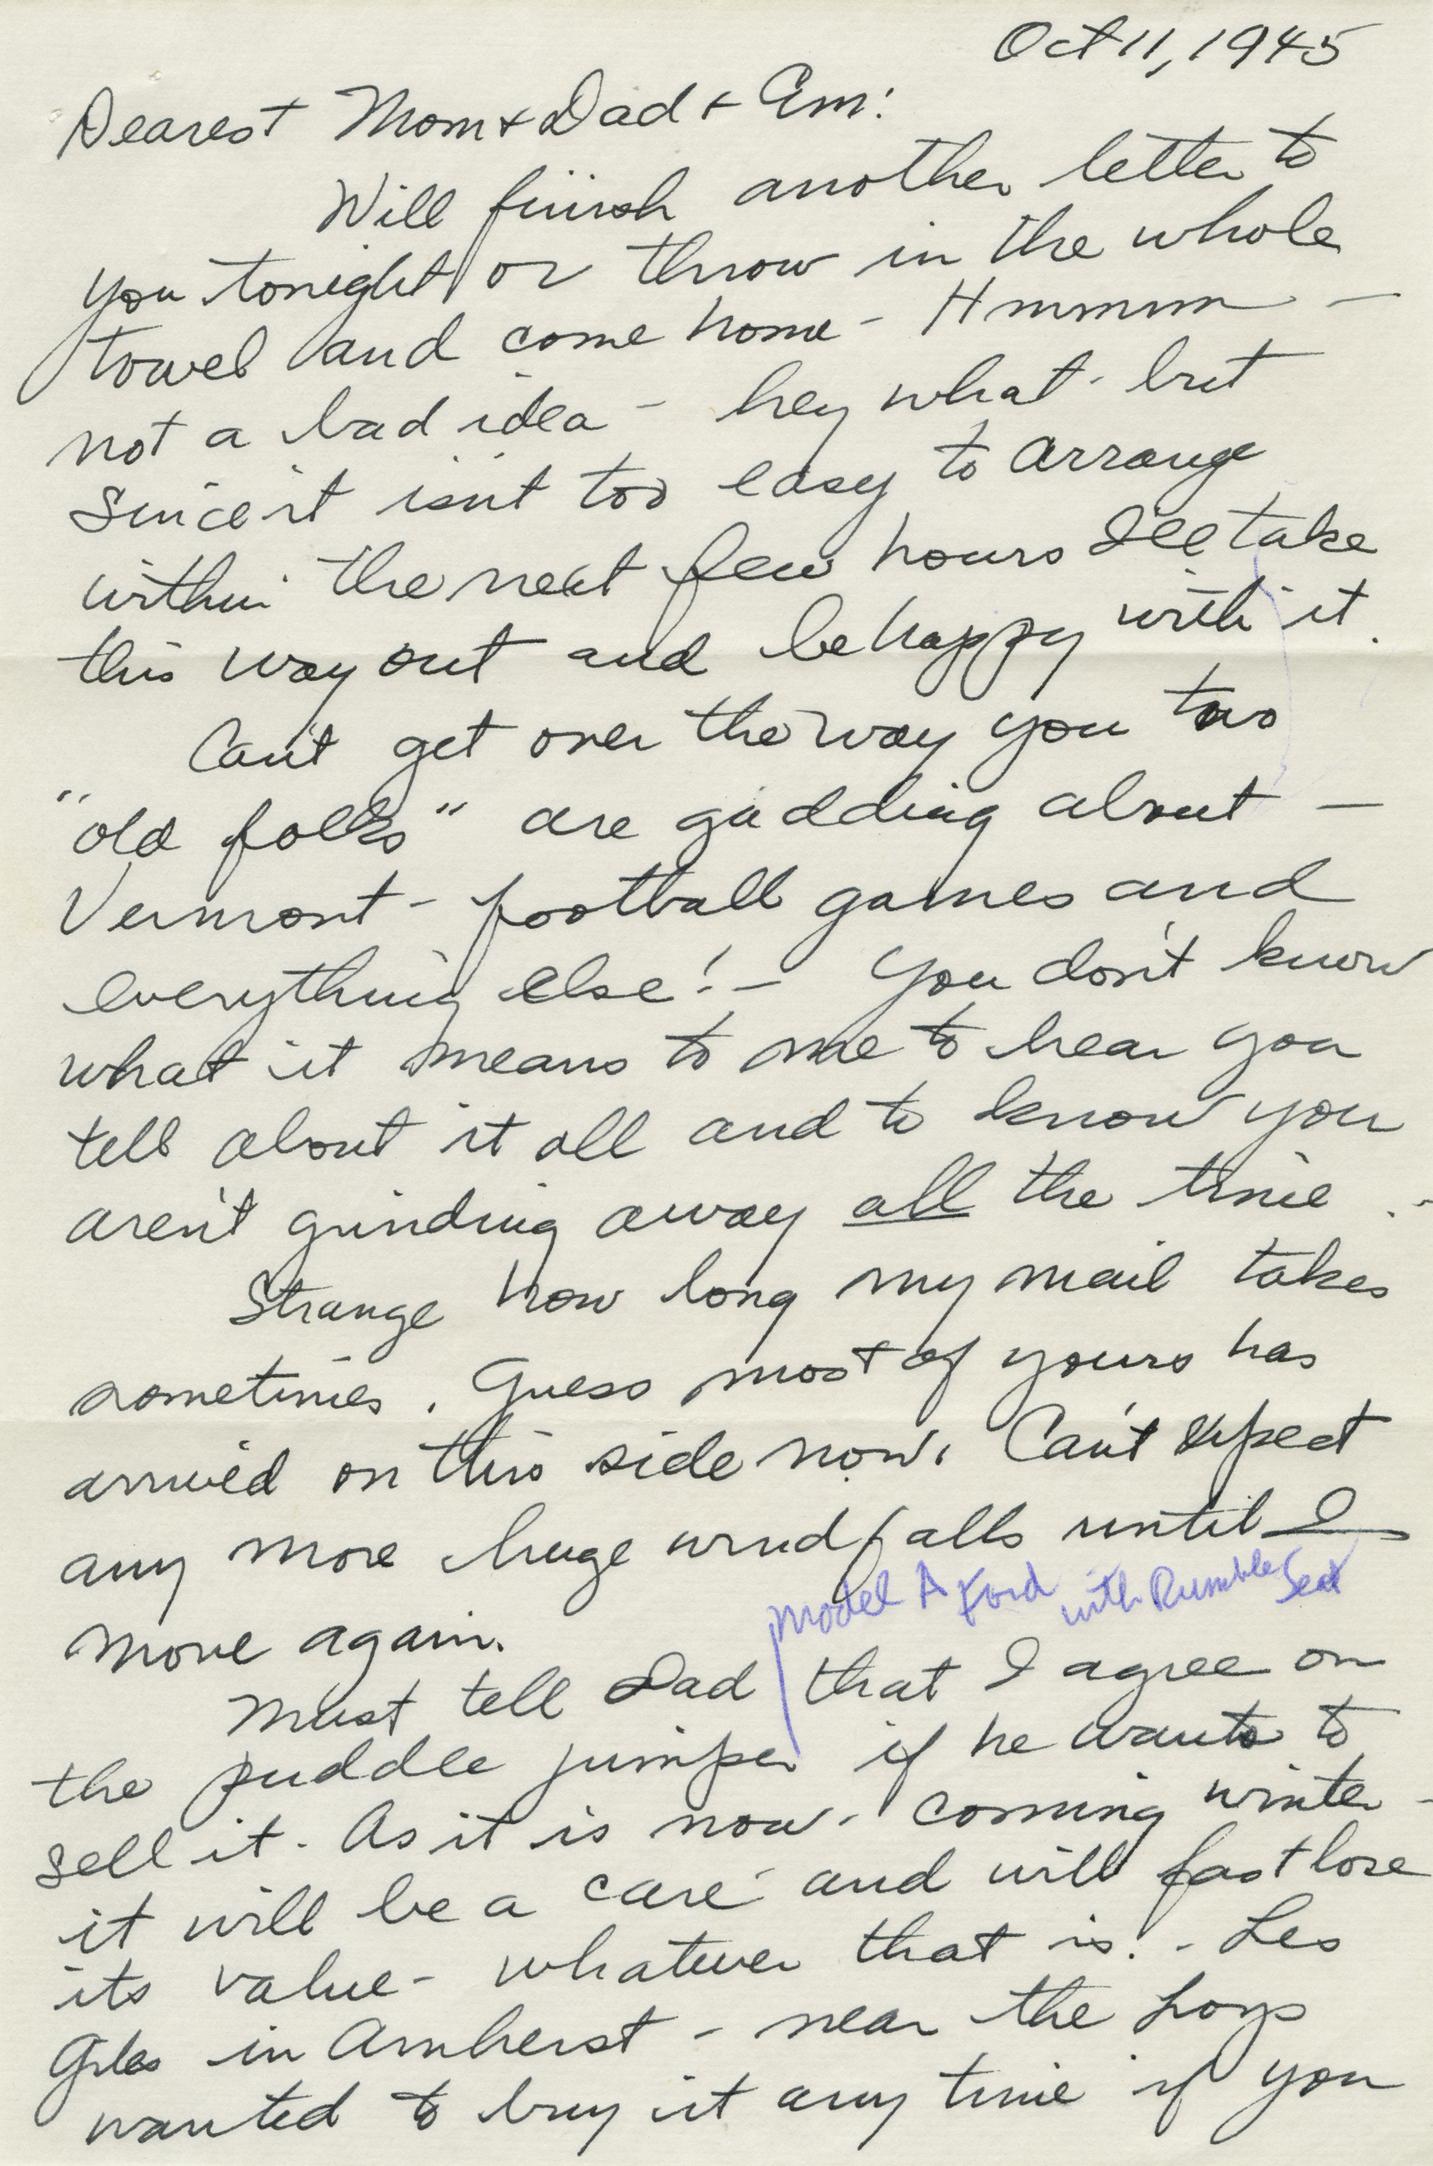 Oct 11, 1945
Dearest Mom & Dad & Em:
Will finish another letter to
you tonight or throw in the whole
towel and come home - Hmmmm -
not a bad idea - hey what - but
since it isn't too easy to arrange
within the next few hours I'll take
this way out and be happy with it.
Can't get over the way you two
"old folks" are gadding about -
Vermont - football games and
everything else! - You don't know
what it means to me to hear you
tell about it all and to know you
aren't grinding away all the time.
Strange how long my mail takes
sometimes. Guess most of yours has
arrived on this side now. Can't expect
any more huge windfalls until I
move again.
Model A Ford with Rumble Seat
Must tell Dad that I agree on
the puddle jumper if he wants to
sell it. As it is now - coming winter -
it will be a care and will fast lose
its value - whatever that is. - Les
Giles in Amherst - near the Loys
wanted to buy it any time if you